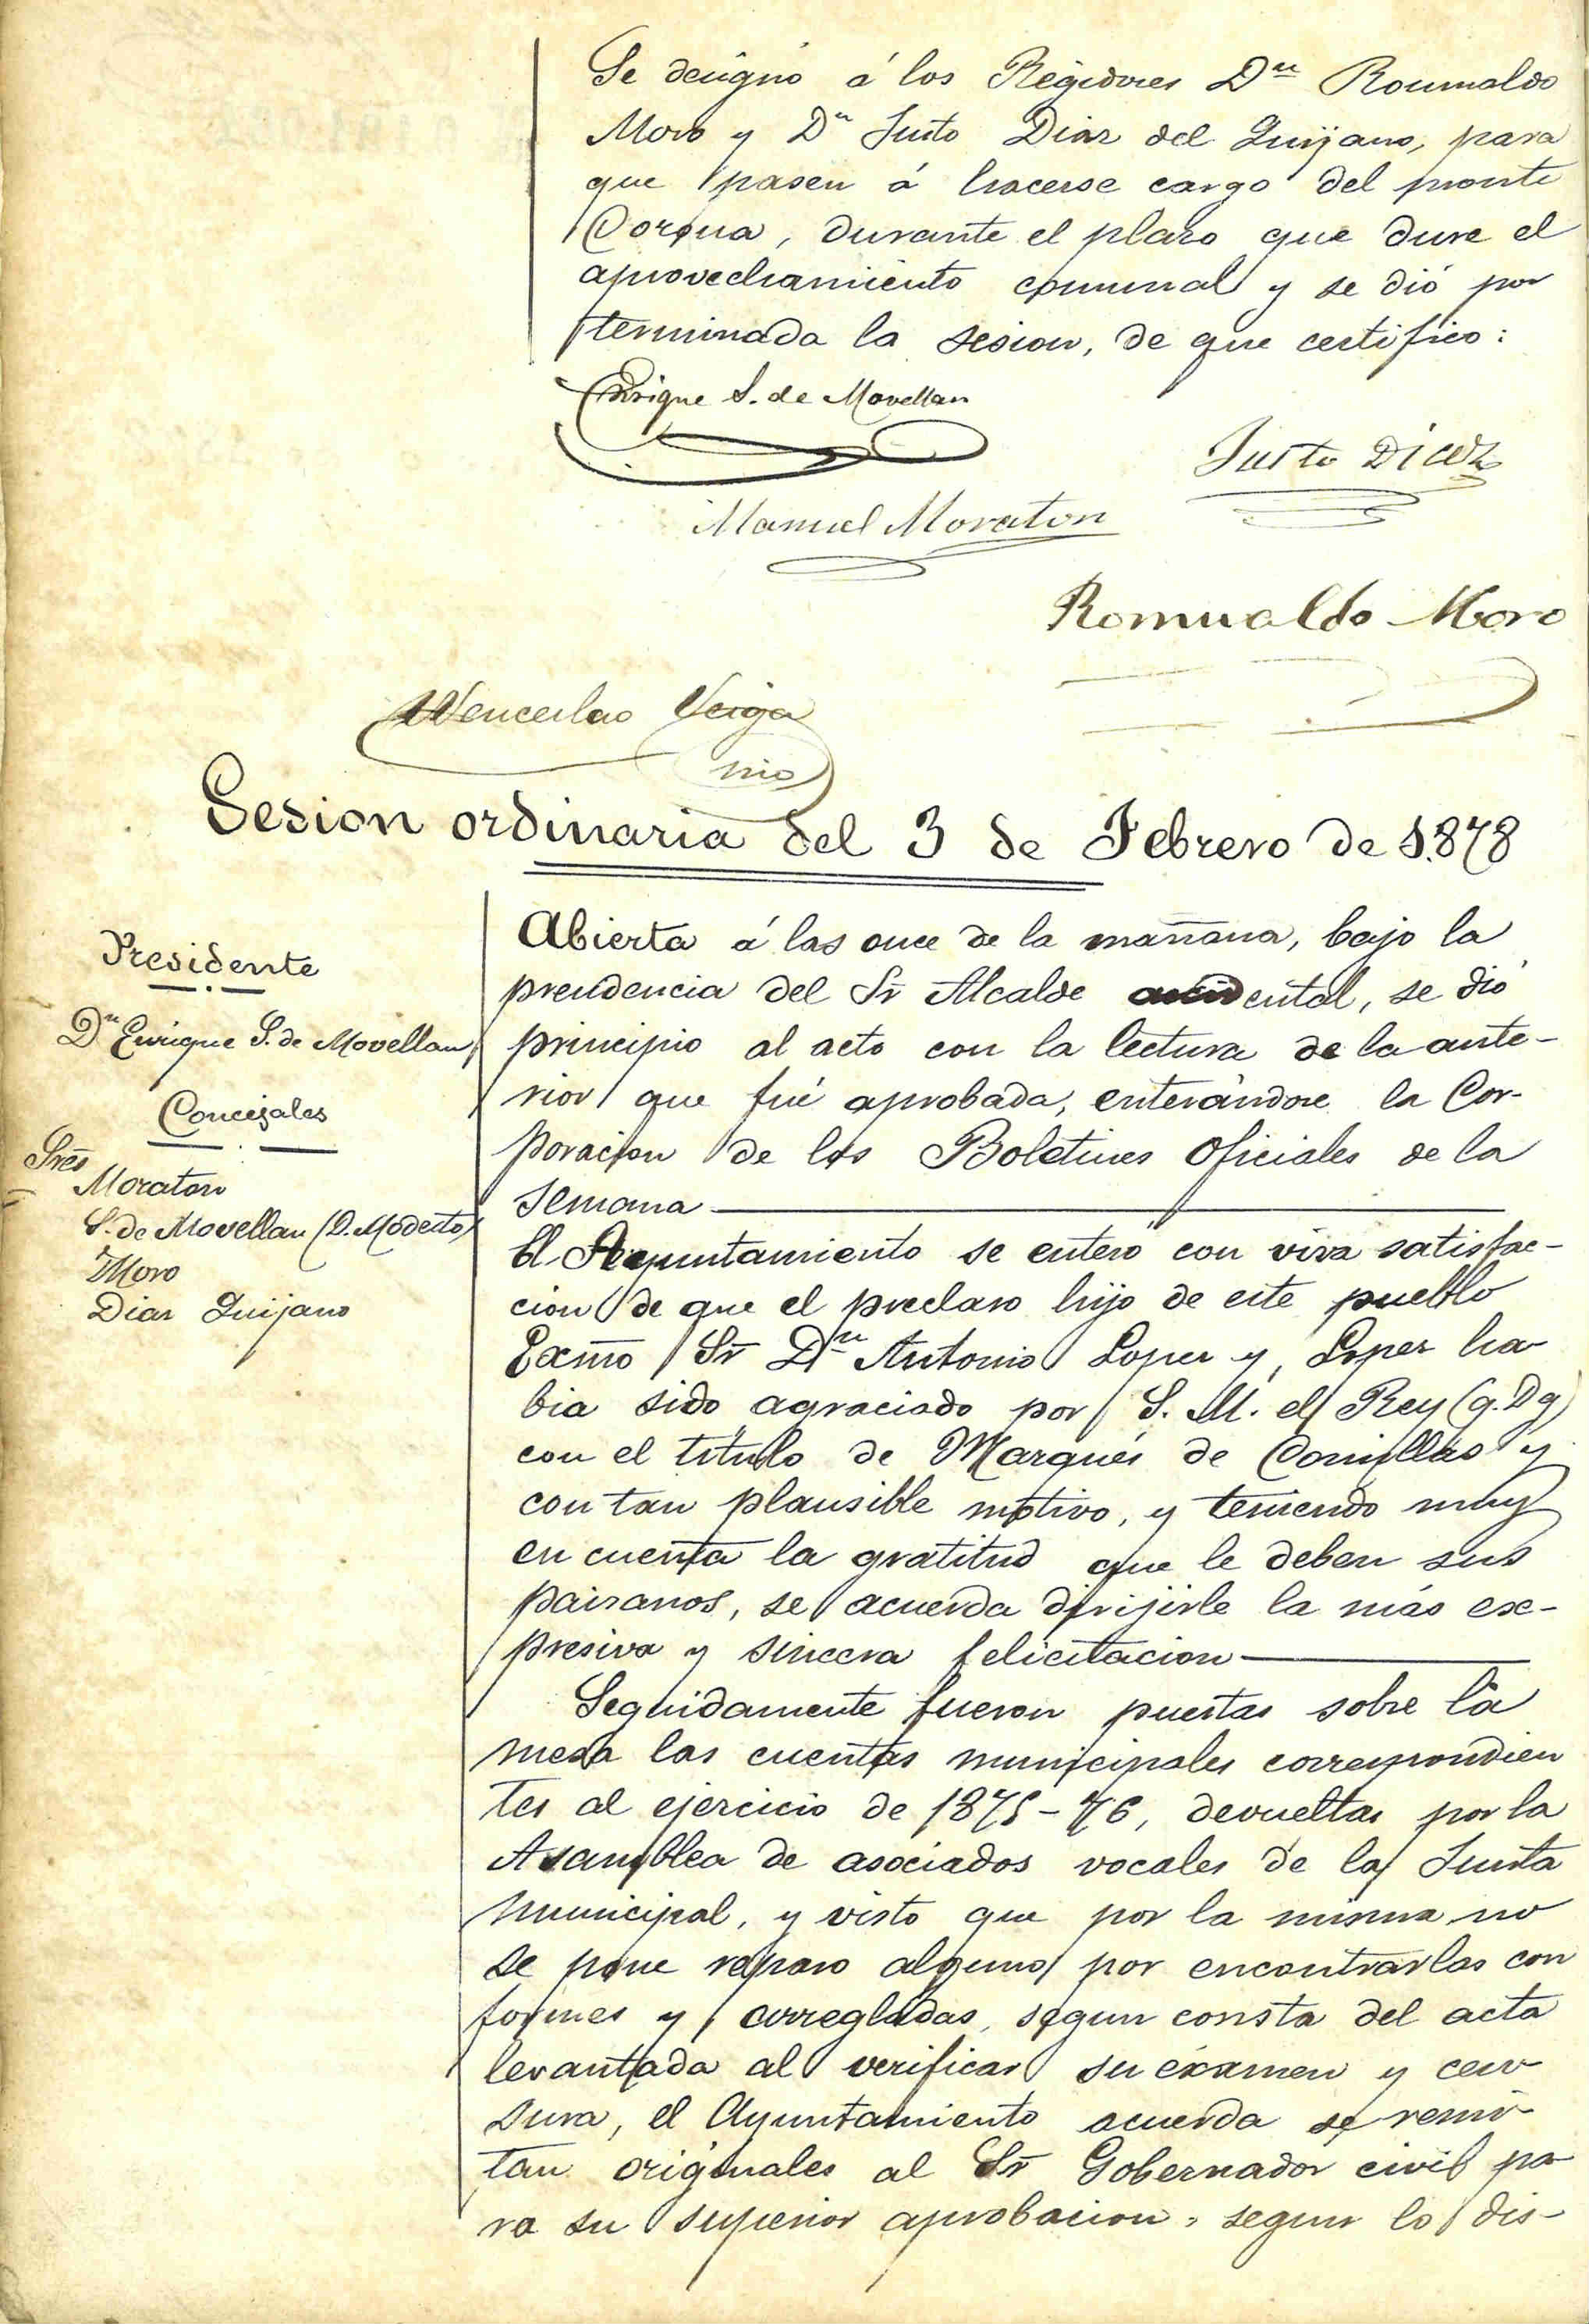 Se designó á los Regidores Dn Roumaldo
Moro y Dn Justo Diaz del Quijano, para
que pasen á hacerse cargo del monte
Corona, durante el plazo que dure el
aprovechamiento comunal y se dió por
terminada la sesion, de que certifico:
Enrique S. de Movellan
Justo Diaz
Manuel Moraton
Romualdo Moro
Wenceslao Veiga
Srio
Sesion ordinaria del 3 de Febrero de 1.878
Presidente
Dn Enrique S. de Movellan
Concejales
Sres
Moraton
S. de Movellan (D. Modesto)
Moro
Diaz Quijano
Abierta á las once de la mañana, bajo la
presidencia del Sr Alcalde accidental, se dió
principio al acto con la lectura de la ante-
rior que fué aprobada, enterándose la Cor-
poracion de los Boletines Oficiales de la
semana
El Ayuntamiento se enteró con viva satisfac-
cion de que el preclaro hijo de este pueblo
Exmo Sr Dn Antonio Lopez y Lopez ha-
bia sido agraciado por S. M. el Rey (q. D g)
con el título de Marqués de Comillas y
con tan plausible motivo, y teniendo muy
en cuenta la gratitud que le deben sus
paisanos, se acuerda dirijirle la más ex-
presiva y sincera felicitacion
Seguidamente fueron puestas sobre la
mesa las cuentas municipales correspondien
tes al ejercicio de 1875-76, devueltas por la
Asamblea de asociados vocales de la Junta
municipal, y visto que por la misma no
se pone reparo alguno por encontrarlas con
formes y arregladas, segun consta del acta
levantada al verificar su exámen y cen-
sura, el Ayuntamiento acuerda se remi-
tan originales al Sr Gobernador civil pa-
ra su superior aprobacion, segun lo dis-